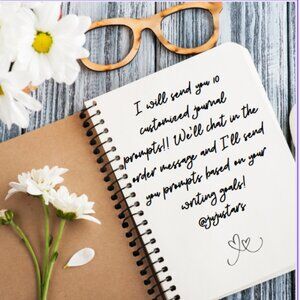 I will send you 10
customized journal
prompts!! We'll chat in the
order message and I'll send
you prompts based on your
writing goals!
@jujustars